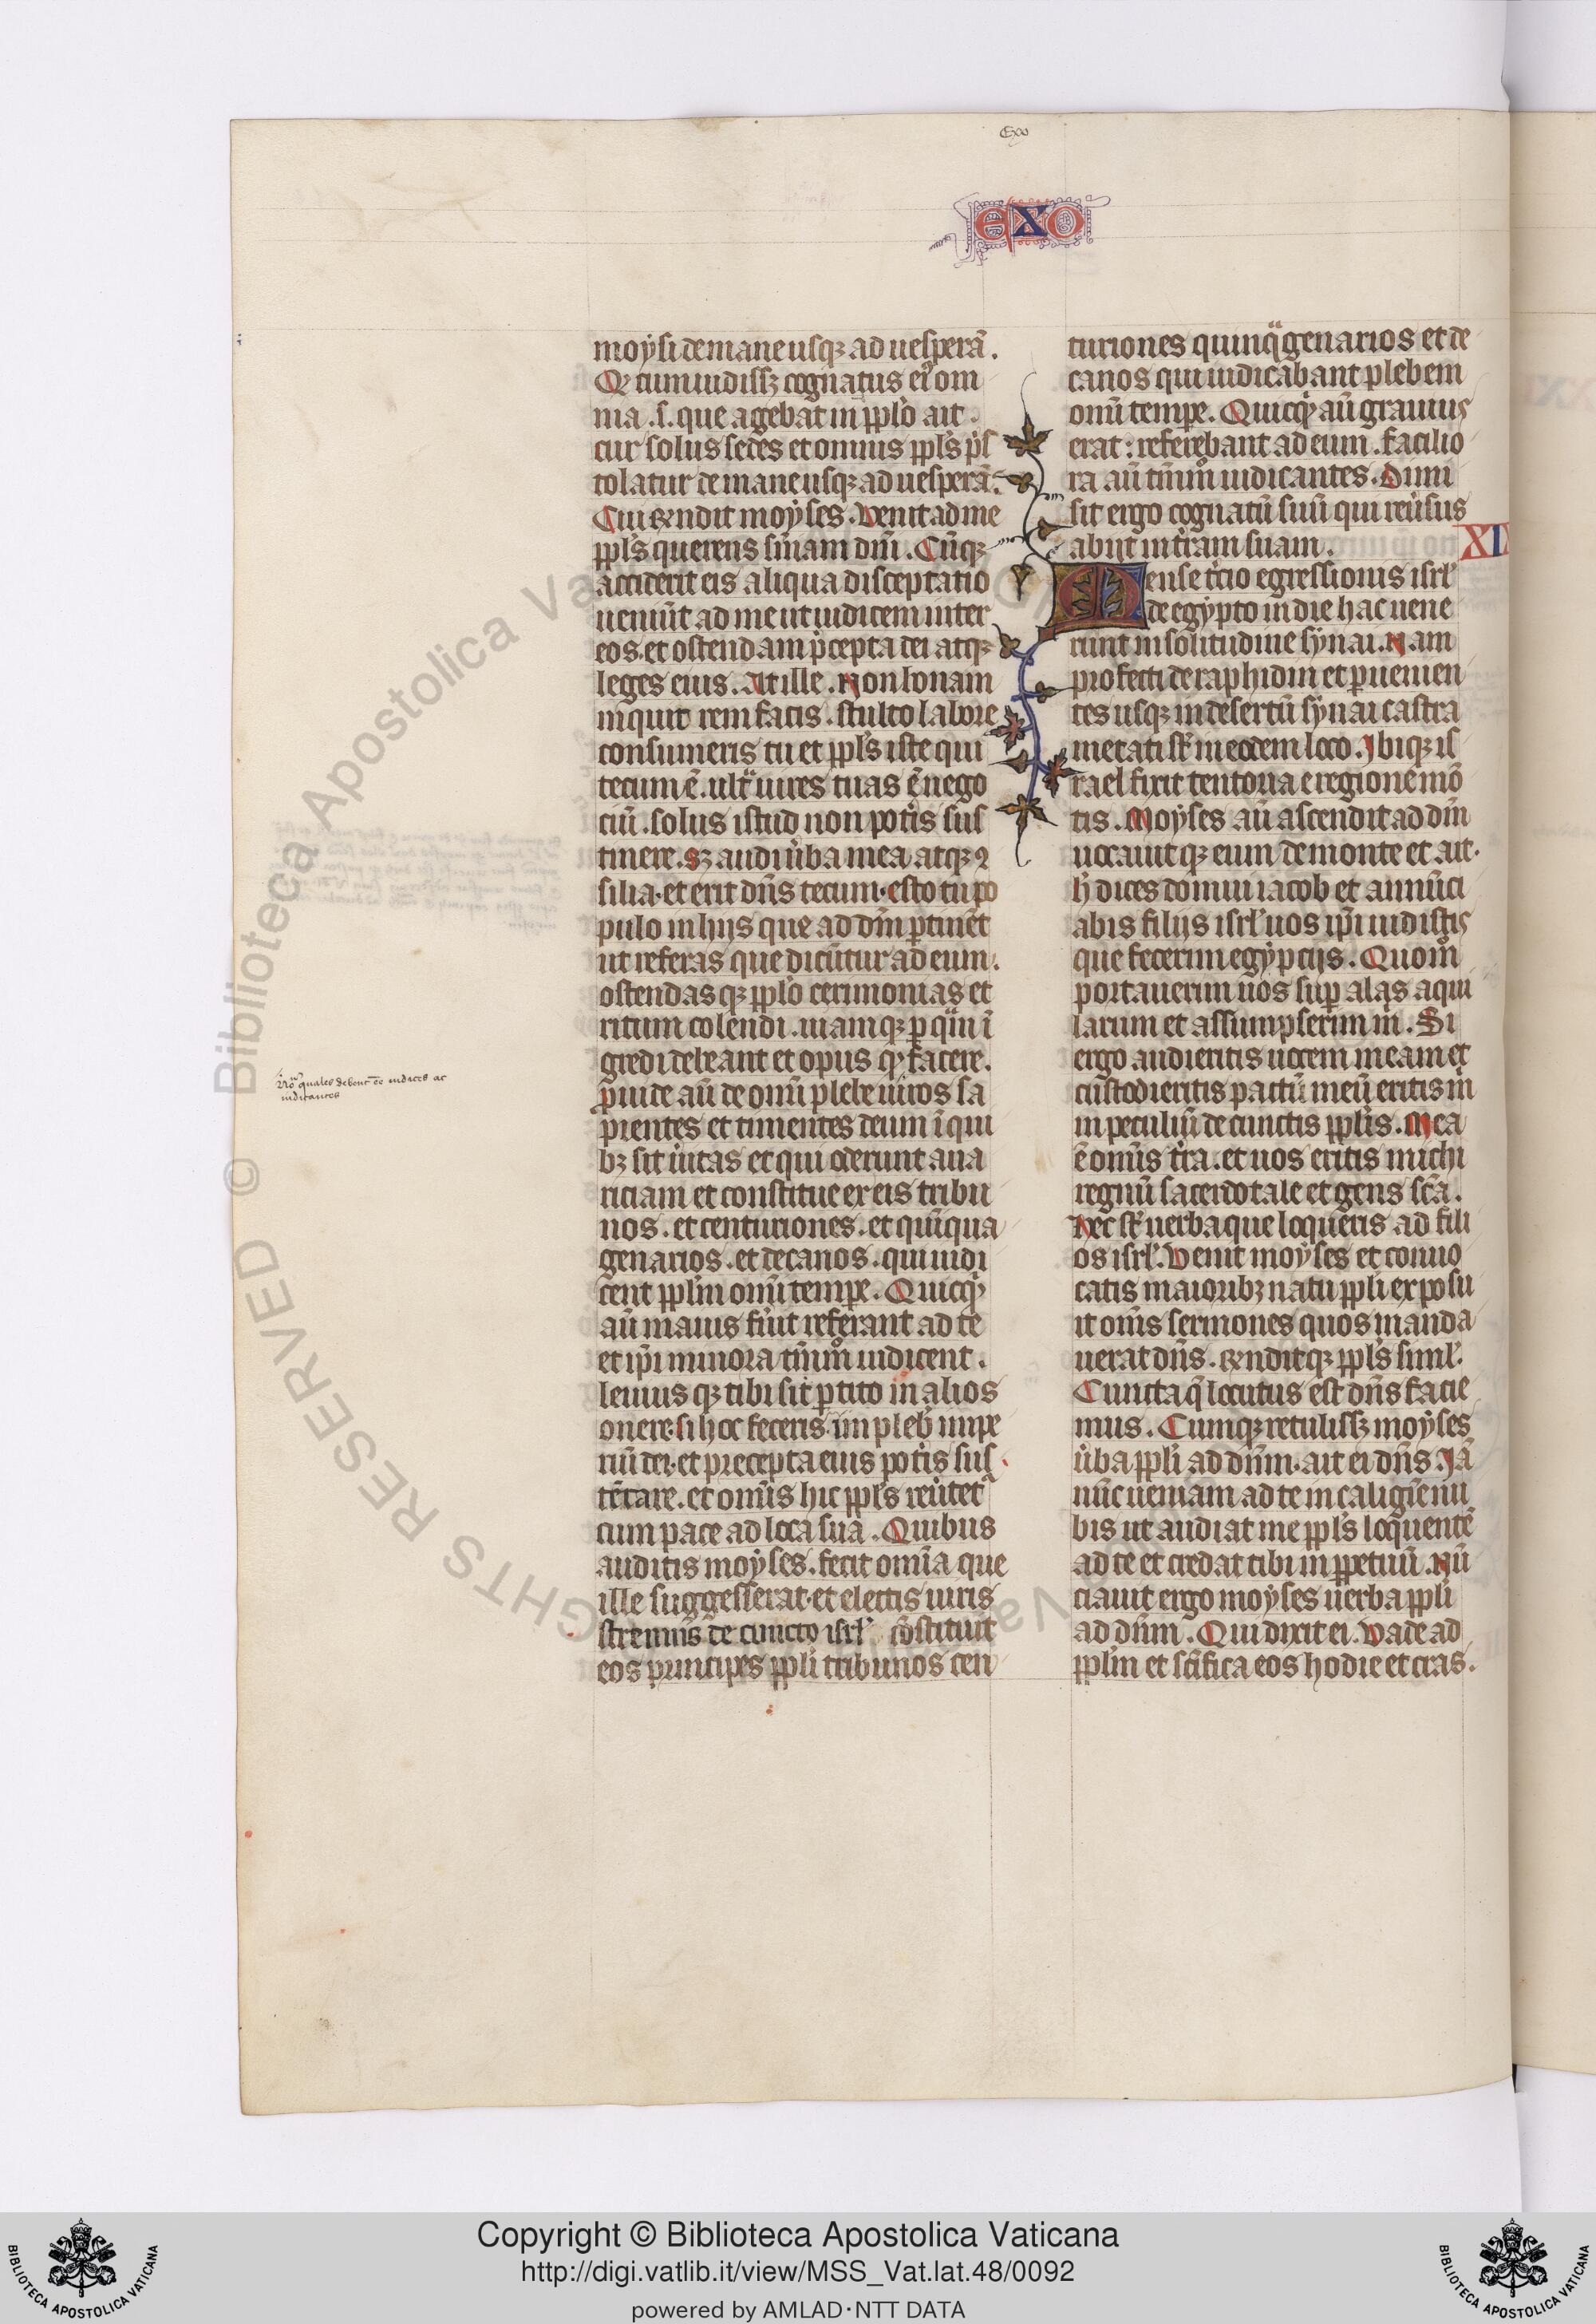 Exo
EXO
moysi de mane usqꝫ ad uesperā.
Qđ cum uidissꝫ cognatus eiꝰ om
nia .s. que agebat in ppl̓o ait.
cur solus sedes et omnis ppl̓s p̄s
tolatur de mane usqꝫ ad uesperā.
Cui rñdit moyses. Venit ad me
ppl̓s querens sn̄iam dn̄i. Cūqꝫ
acciderit eis aliqua disceptatio
ueniūt ad me ut iudicem inter
eos. et ostendam p̄cepta dei atqꝫ
leges eius. At ille. Non bonam
inquit rem facis. stulto labore
consumeris tu et ppl̓s iste qui
tecum ē. ultᵃ uires tuas ē nego
ciū. solus istud non potis sus
tinere. Sꝫ audi ũba mea atqꝫ ꝯ
silia. et erit dn̄s tecum. esto tu po
pulo in hijs que ad dm̄ ꝑtinēt
ut referas que dicūtur ad eum.
ostendasqꝫ ppl̓o cerimonias et
ritum colendi. uiamqꝫ ꝑ qᵃm ī
gredi debeant et opus qꝫ facere.
ꝓuide aū de omni plebe uiros sa
pientes et timentes deum ī qui
bꝫ sit ũitas et qui oderunt aua
riciam et constitue ex eis tribu
nos. et centuriones. et quīqua
genarios. et decanos. qui iudi
cent ppl̓m omni tempe. Quicqᵈ
aū maius fũit referant ad te
et ip̄i minora tm̄mᵒ iudicent.
leuius qꝫ tibi sit ꝑtito in alios
onere. si hoc feceris. impleb̓ impe
riū dei. et precepta eius potis sus
tētare. et omīs hic ppl̓s reũtet᷑
cum pace ad loca sua. Quibus
auditis moyses. fecit omīa que
ille suggesserat. et electis uiris
strenuis de cuncto isrl̓ cōstituit
eos principes ppl̓i tribunos cen
No quales debent eē iudices ac
iudicantes
turiones quinqᵃgenarios et de
canos qui iudicabant plebem
omī tempe. Quicqᵈ aū grauius
erat: referebant ad eum. facilio
ra aū tm̄mᵒ iudicantes. Dimi
sit ergo cognatū suū qui reũsus
abijt in tr̃am suam.
XIX
Mense t̓cio egressionis isrl̓
de egypto in die hac uene
runt in solitudine synai. Nam
profecti de raphidin et ꝑuenien
tes usqꝫ in desertū synai castra
metati st̄ in eodem loco. Ibiqꝫ is
rael fixit tentoria e regione mō
tis. Moyses aū ascendit ad dm̄
uocauitqꝫ eum de monte et ait.
h̓ dices domui iacob et annūci
abis filijs isrl̓ uos ip̄i uidistis
que fecerim egypcijs. Quomᵒ
portauerim uos suꝑ alas aqui
larum et assumpserim m̓. Si
ergo audieritis uocem meam et
custodieritis pactū meū eritis m̓
in peculiū de cunctis ppl̓is. Mea
ē omīs tr̃a. et uos eritis michi
regnū sacerdotale et gens sc̄a.
Hec st̄ uerba que loqueris ad fili
os isrl̓. Venit moyses et conuo
catis maioribꝫ natu ppl̓i exposu
it omīs sermones quos manda
uerat dn̄s. rñditqꝫ ppl̓s siml̓.
Cuncta q̄ locutus est dn̄s facie
mus. Cumqꝫ retulissꝫ moyses
ũba ppl̓i ad dn̄m. ait ei dn̄s. Iā
nūc ueniam ad te in caligine nu
bis ut audiat me ppl̓s loquentē
ad te et credat tibi in ꝑpetuū. Nū
ciauit ergo moyses uerba ppl̓i
ad dn̄m. Qui dixit ei. Vade ad
ppl̓m et sc̄ifica eos hodie et cras.
© Biblioteca Apostolica Vaticana
RIGHTS RESERVED
Copyright © Biblioteca Apostolica Vaticana
http://digi.vatlib.it/view/MSS_Vat.lat.48/0092
powered by AMLAD·NTT DATA
BIBLIOTECA APOSTOLICA VATICANA
BIBLIOTECA APOSTOLICA VATICANA